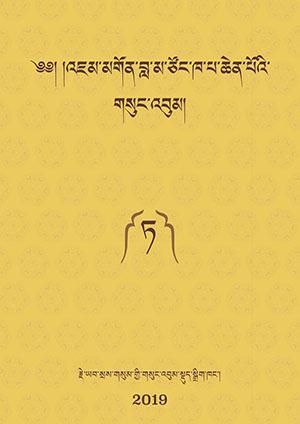 ༄༅། །འཇམ་མགོན་བླ་མ་ཙོང་ཁ་པ་ཆེན་པོའི་
གསུང་འབུམ།
ཏ
རྗེ་ཡབ་སྲས་གསུམ་གྱི་གསུང་འབུམ་སྡུད་སྒྲིག་ཁང་།
2019